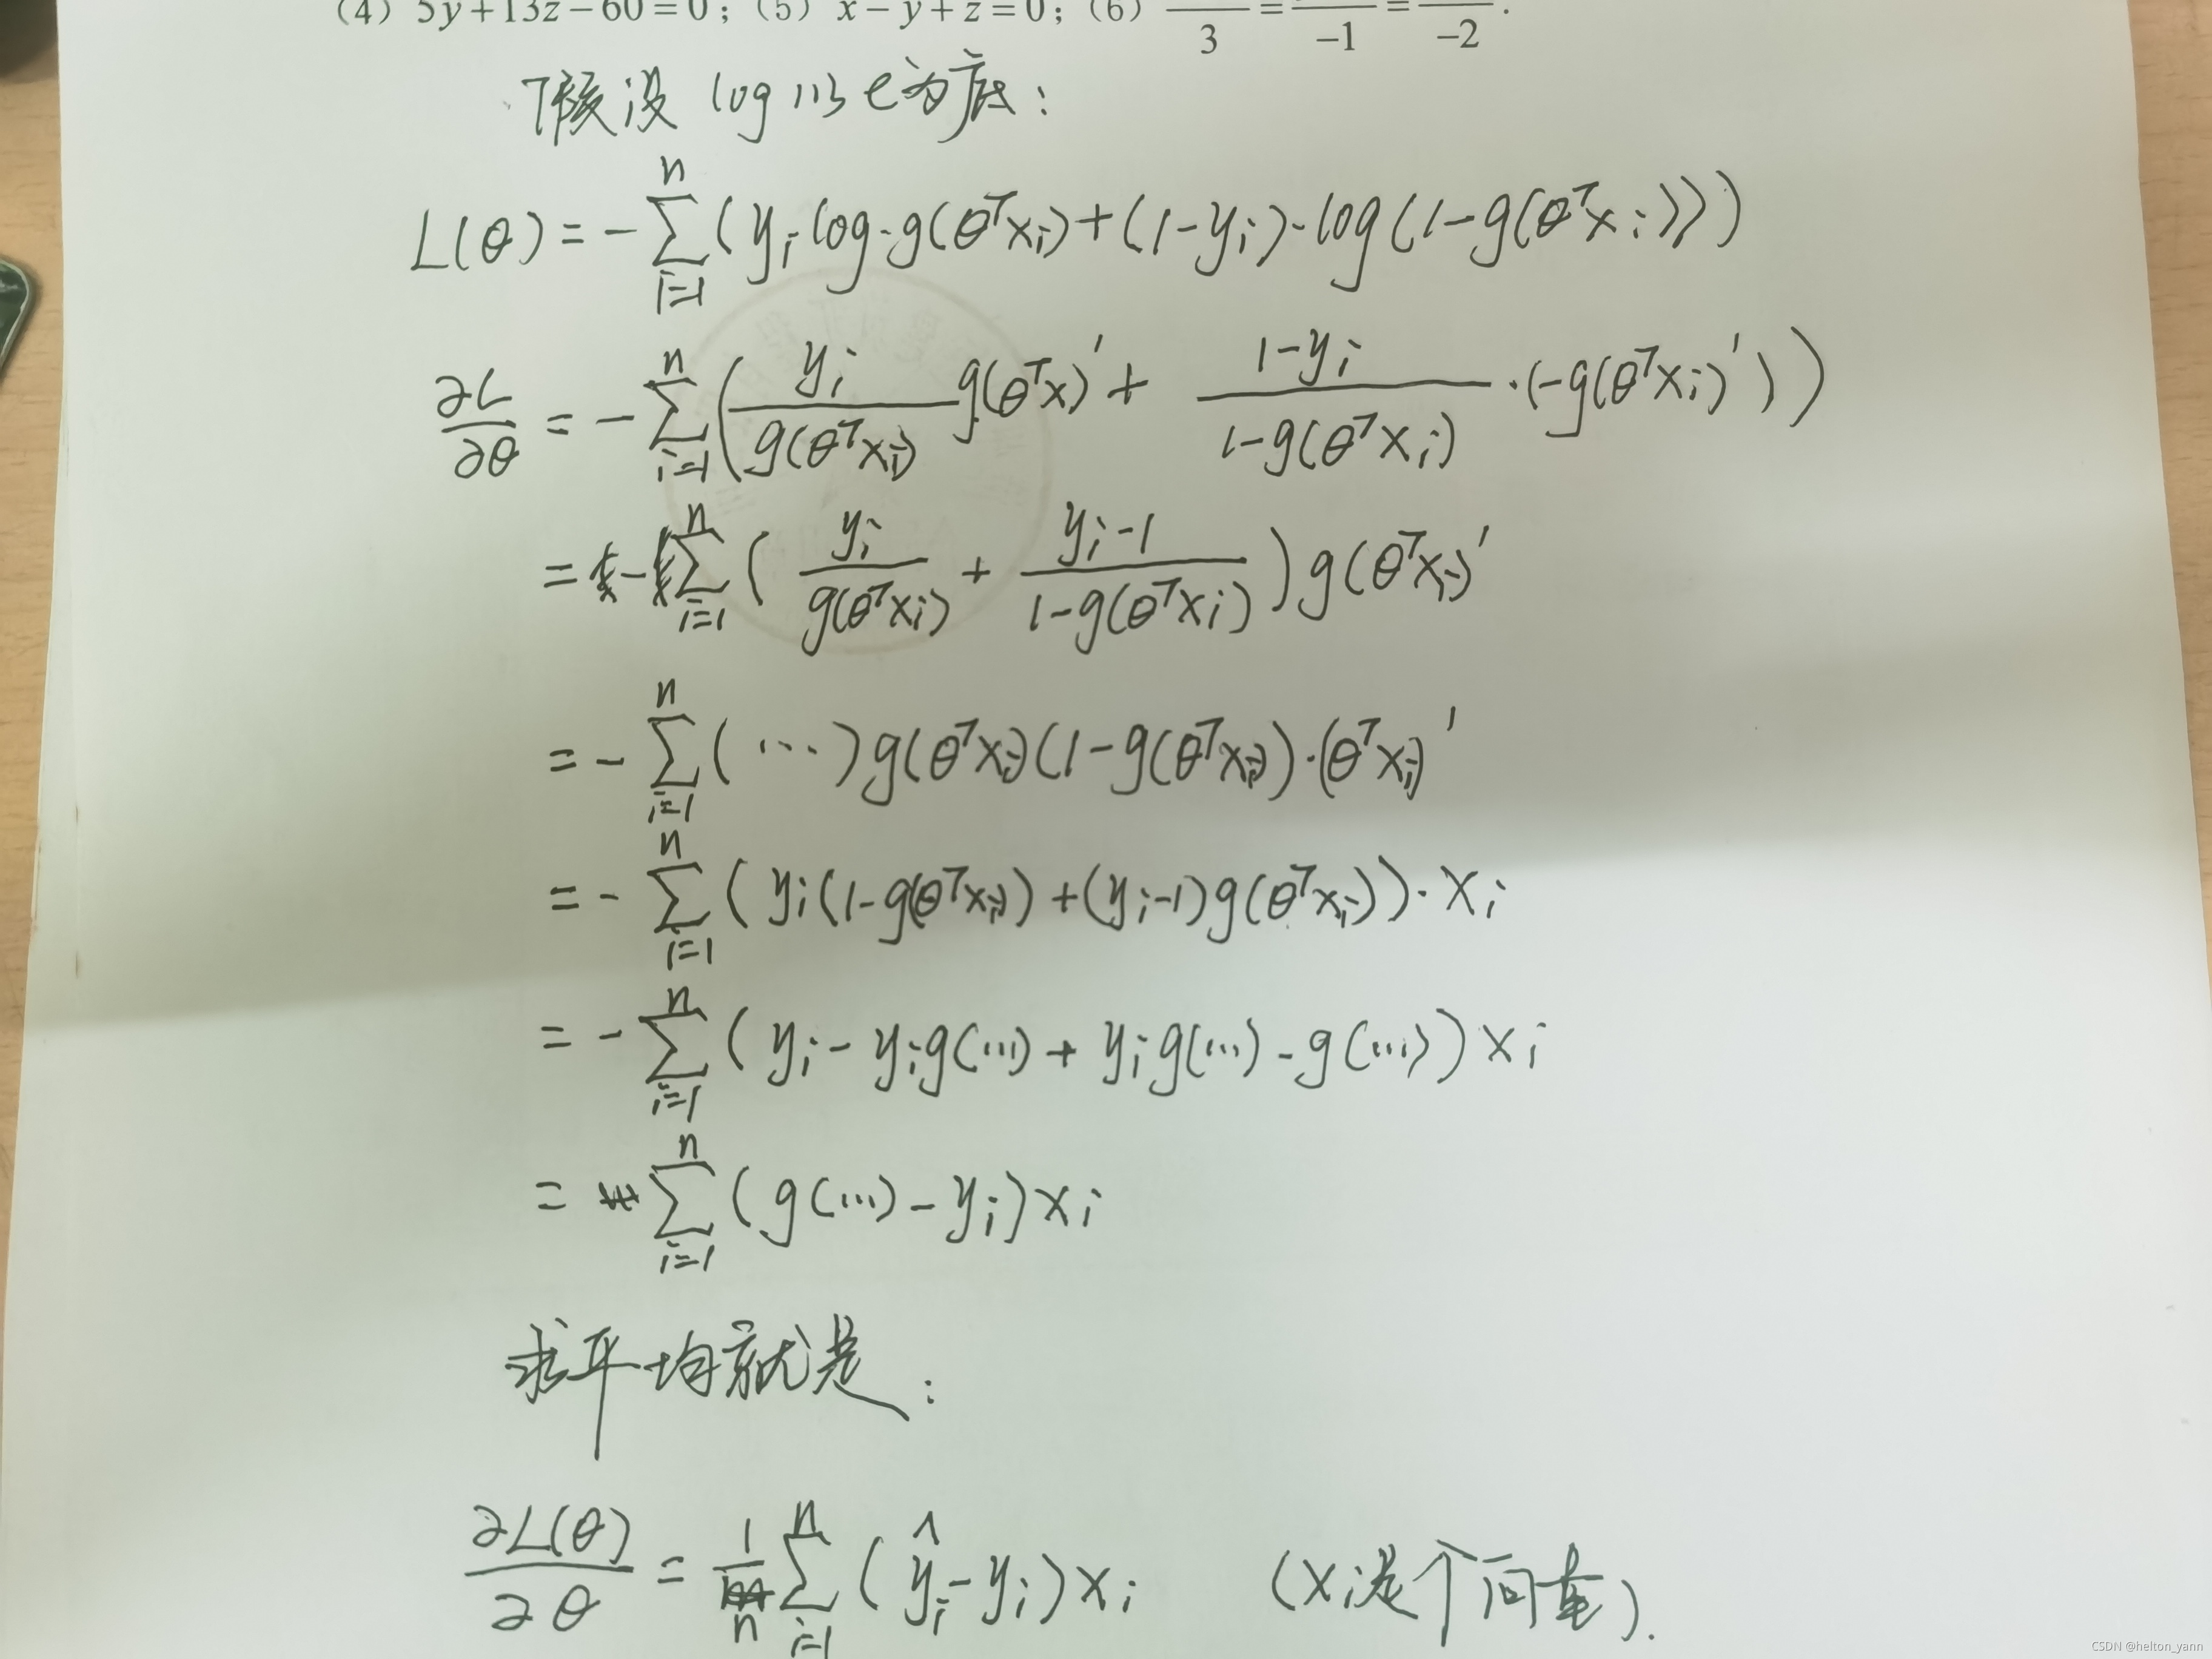 (4) 5y+13z-60=0; (5) x-y+z=0; (6) —/3 = —/-1 = —/-2.
假设 log 以 e为底:
L(θ) = - Σ_{i=1}^{n} (y_i log·g(θ^T x_i) + (1-y_i)·log(1-g(θ^T x_i)))
∂L/∂θ = - Σ_{i=1}^{n} ( y_i/g(θ^T x_i) g(θ^T x)' + (1-y_i)/(1-g(θ^T x_i)) ·(-g(θ^T x_i)') ) )
= - Σ_{i=1}^{n} ( y_i/g(θ^T x_i) + (y_i-1)/(1-g(θ^T x_i)) ) g(θ^T x_i)'
= - Σ_{i=1}^{n} (···) g(θ^T x_i)(1-g(θ^T x_i))·(θ^T x_i)'
= - Σ_{i=1}^{n} ( y_i(1-g(θ^T x_i)) + (y_i-1)g(θ^T x_i) )· x_i
= - Σ_{i=1}^{n} ( y_i - y_i g(···) + y_i g(···) - g(···) ) x_i
= Σ_{i=1}^{n} ( g(···) - y_i ) x_i
求平均就是:
∂L(θ)/∂θ = 1/n Σ_{i=1}^{n} ( ŷ_i - y_i ) x_i (x_i是个向量).
CSDN @helton_yann